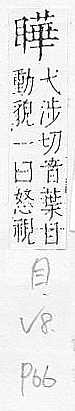 瞱
弋涉切音葉目
動貌一曰怒視
目
V8.
P66